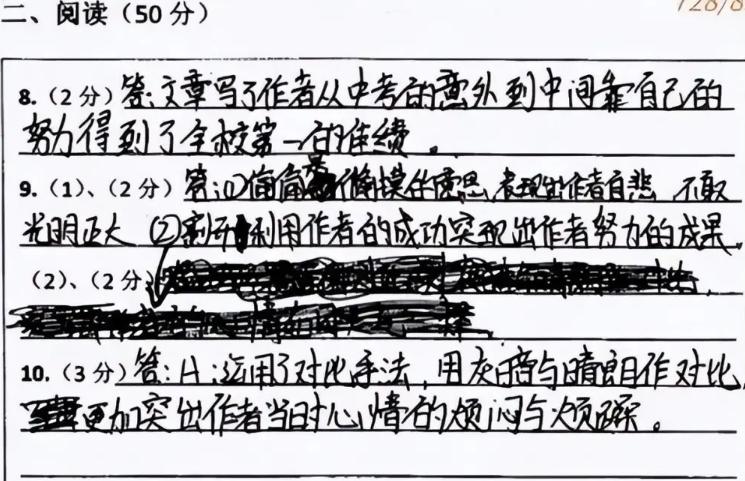 二、阅读（50 分）
128/8
8.（2 分）答：文章写了作者从中考的意外到中间靠自己的
努力得到了全校第一的佳绩。
9.（1）、（2 分）答：(1)偷偷 的意思，表现出作者自悲，不敢
光明正大 (2) 利用作者的成功突现出作者努力的成果。
（2）、（2 分）
10.（3 分）答：A：运用了对比手法，用灰暗与晴朗作对比，
更加突出作者当时心情的烦闷与烦躁。